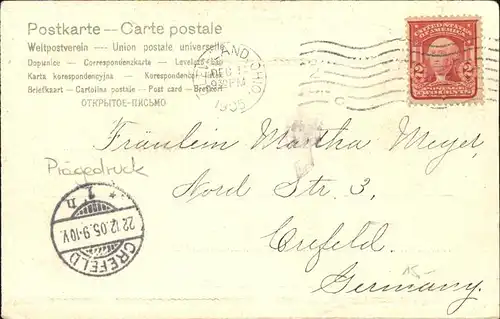 Postkarte — Carte postale
Weltpostverein — Union postale universelle
Dopisnice — Correspondenzkarte — Levelező-Lap
Karta korespondencyjna — Korespondenční lístek
Briefkaart — Cartolina postale — Post card — Brefkort
ОТКРЫТОЕ-ПИСЬМО
CLEVELAND, OHIO
DEC 1
930 PM
1905
UNITED STATES OF AMERICA
2 2
TWO CENTS
Fräulein Martha Meyer,
Prägedruck
Nord Str. 3,
Crefeld.
Germany.
* 1 n *
22.12.05.9-10V.
CREFELD